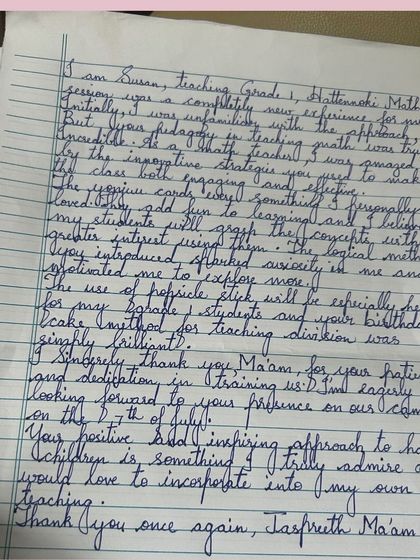 I am Susan, teaching Grade 1, Hattennoki Math
session was a completely new experience for
Initially, I was unfamiliar with the approach,
But your pedagogy in teaching math was
incredible. As a math teacher, I was amazed
by the innovative strategies you used to make
the class both engaging and effective.
The yonjuu cards were something I personally
loved. They add fun to learning and I believe
my students will grasp the concepts with
greater interest using them. The logical meth
you introduced sparked curiosity in me an
motivated me to explore more.
The use of popsicle stick will be especially he
for my grade 1 students and your birthd
cake method for teaching division was
simply brilliant.
I sincerely thank you, Ma'am, for your patie
and dedication in training us. I'm eagerly
looking forward to your presence on our cam
on the 27th of july.
Your positive and inspiring approach to ha
children is something I truly admire a
would love to incorporate into my own
teaching.
Thank you once again, Jaspreeth Ma'am